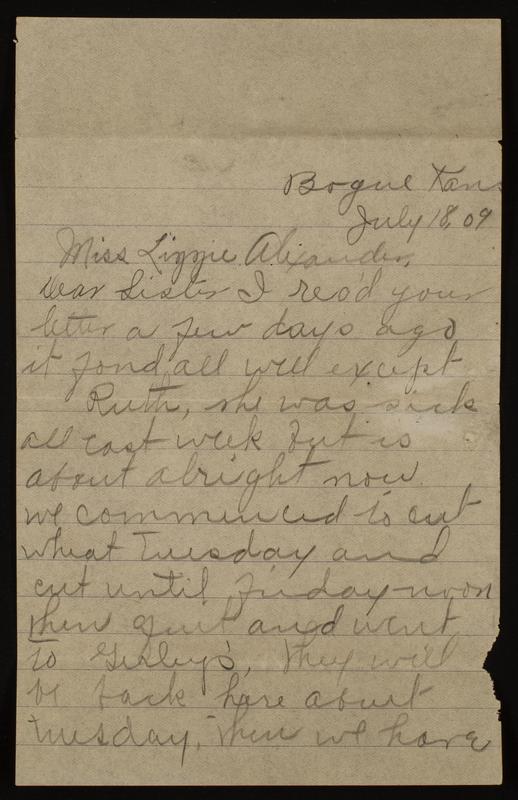 Bogue Kans
July 18, 09
Miss Lizzie Alexander,
Dear Sister I rec'd your
letter a few days ago
it fond all well except
Ruth, she was sick
all last week but is
about alright now
we commenced to cut
wheat Tuesday and
cut until Friday noon
then quit and went
to they will
be back here about
tuesday, then we have